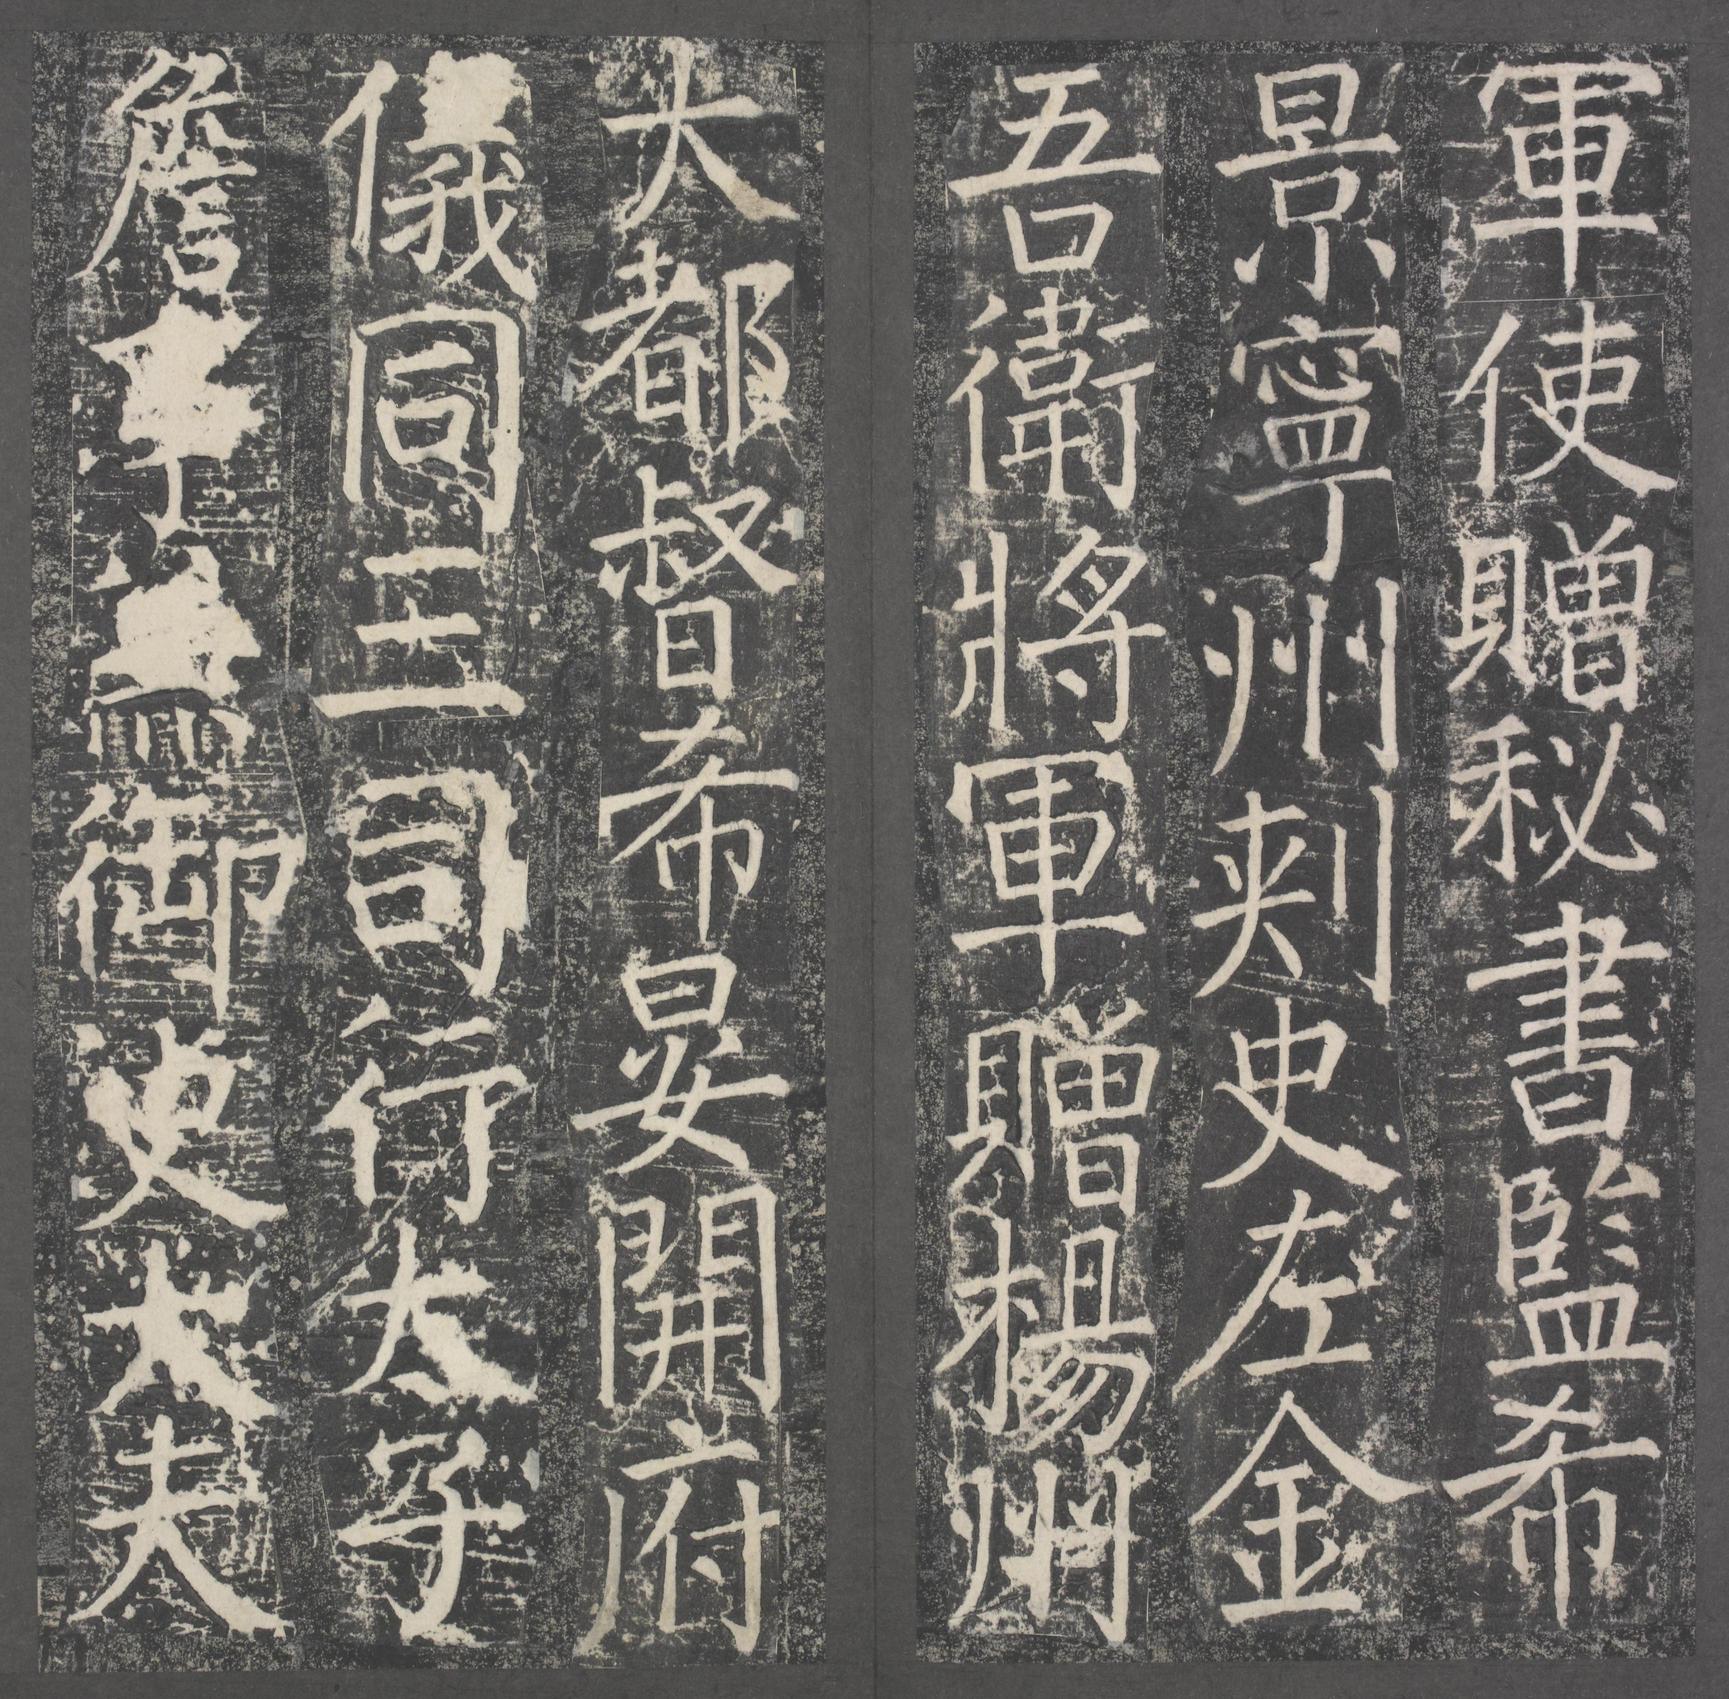 軍使贈秘書監希
景寧州刺史左金
吾衛將軍贈楊州
大都督希晏開府
儀同三司行太子
詹事兼御史大夫